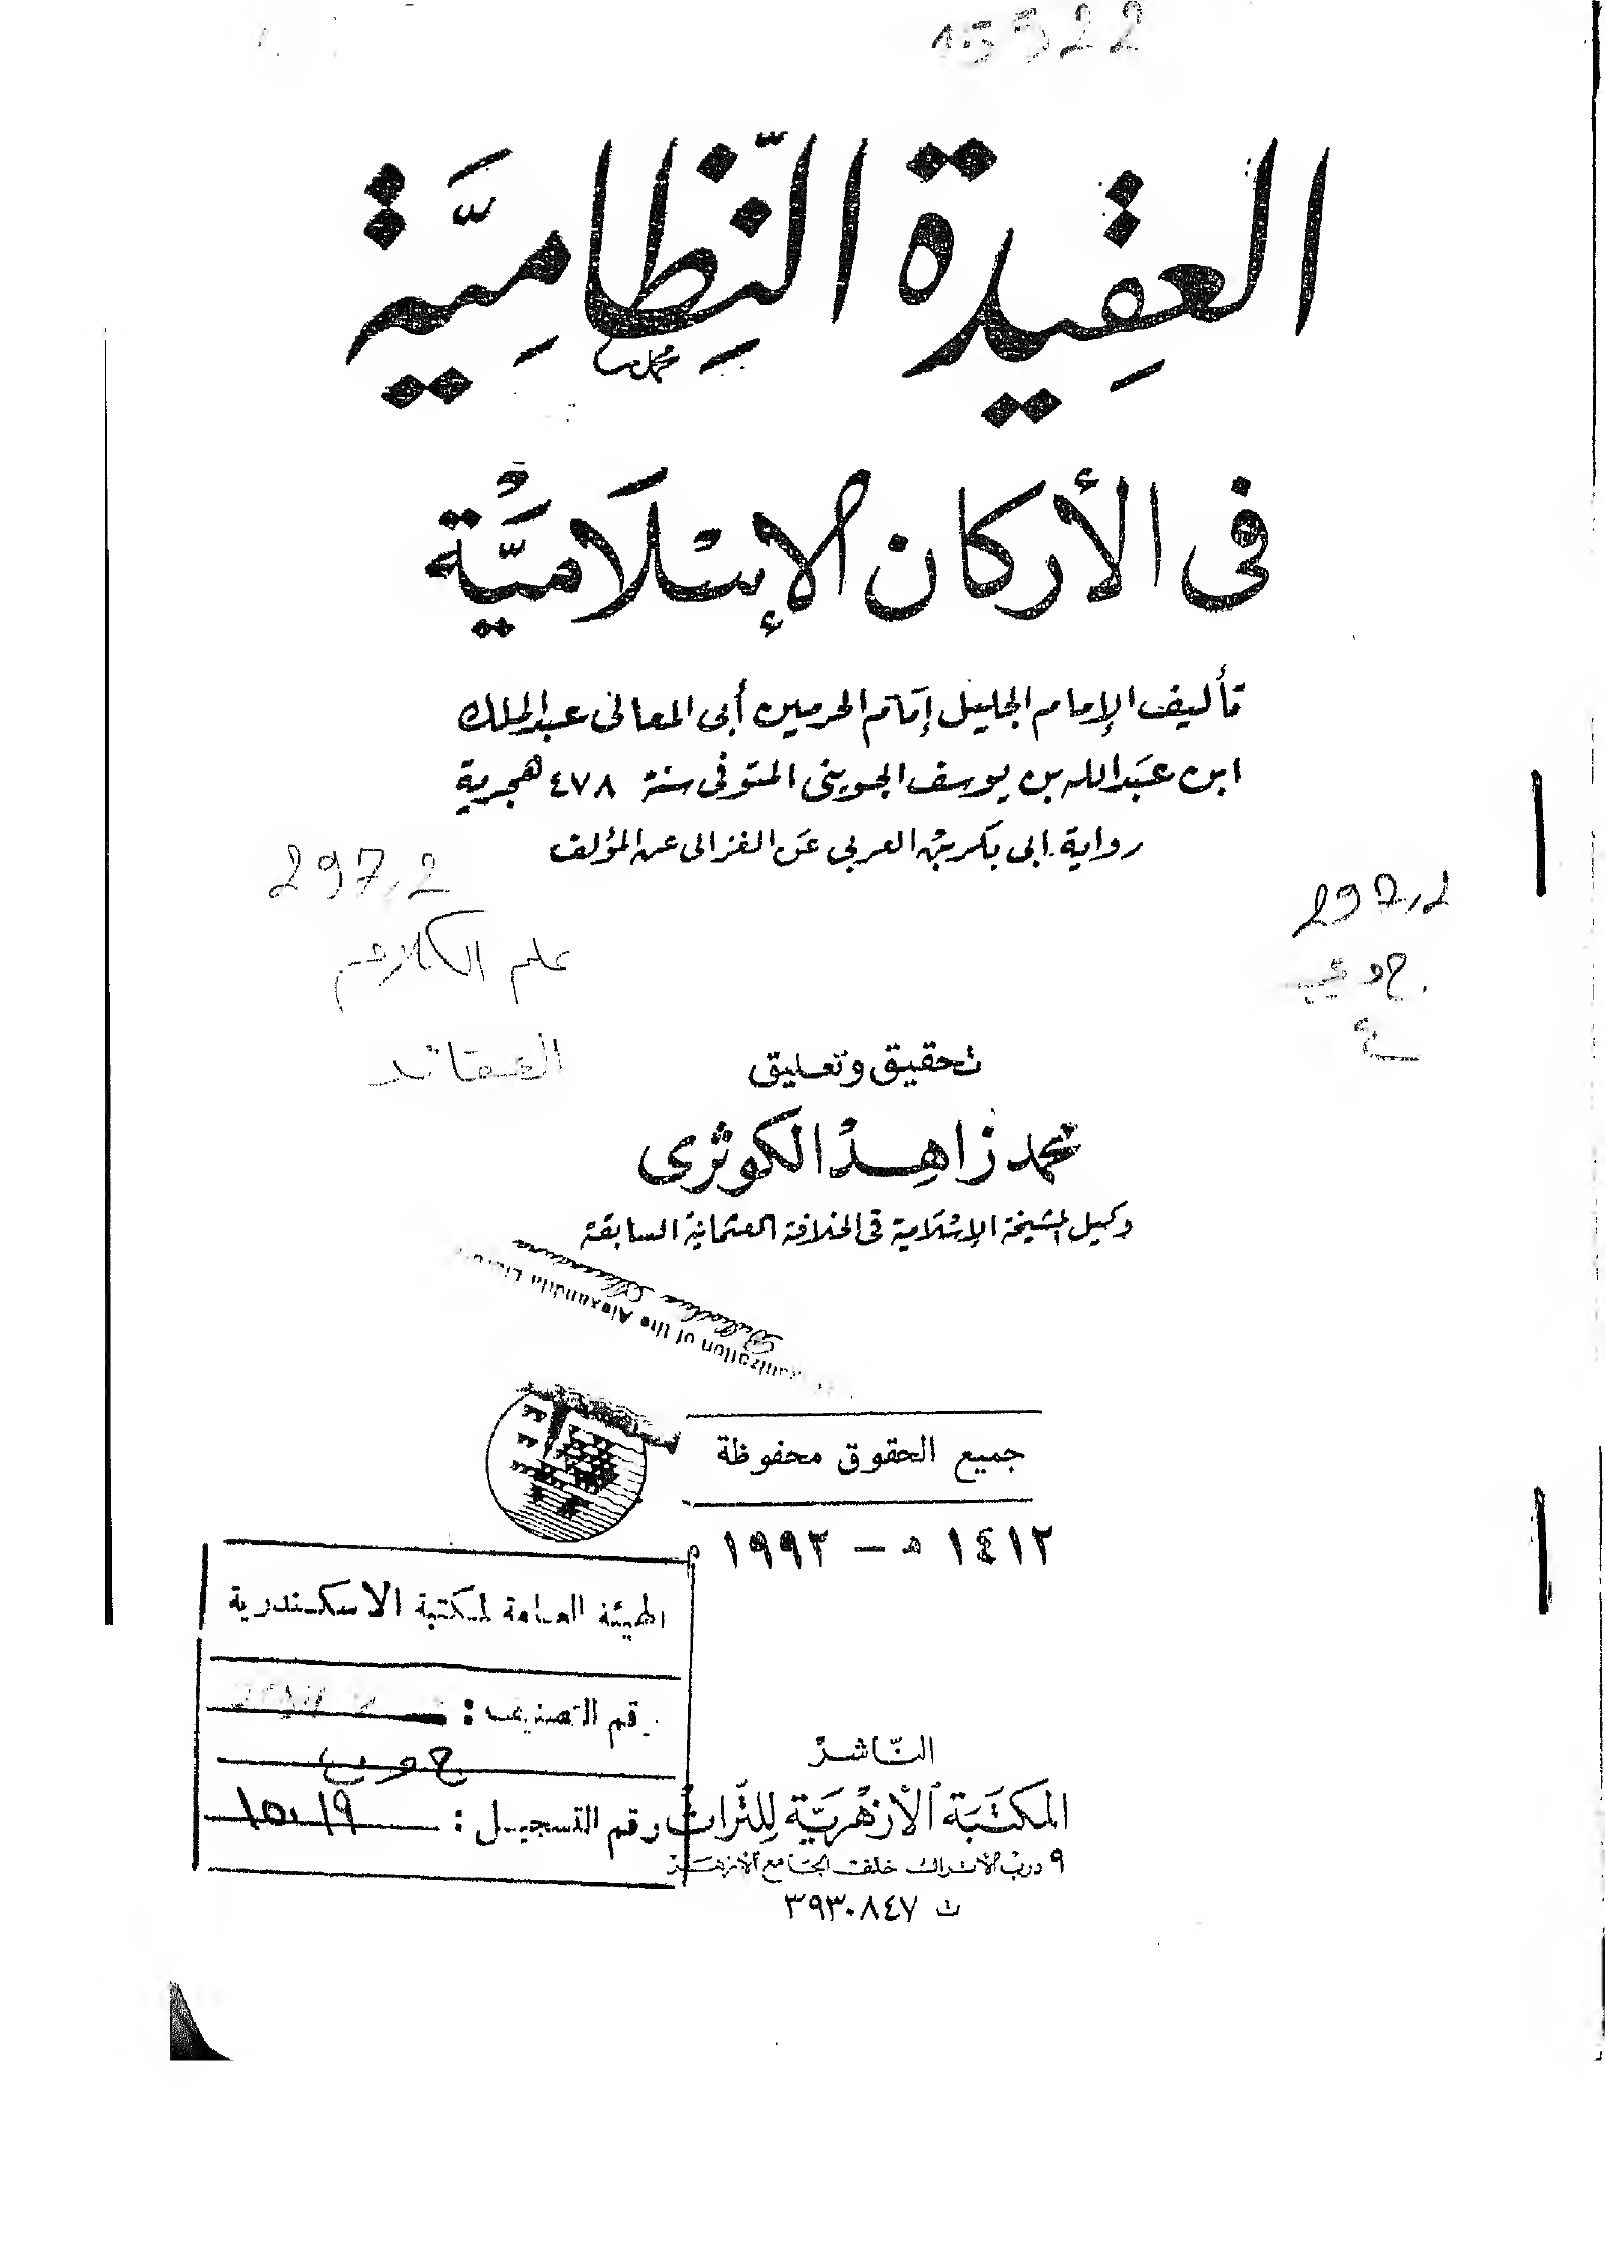 العقيدة النِّظاميَّة
فى الأركان الإسْلَاميَّة
تأليف الإمام الجليل إمام الحرمين أبى المعالى عبد الملك
ابن عبد الله بن يوسف الجوينى المتوفى سنة ٤٧٨ هجرية
رواية ابى بكر بن العربي عن الغزالى عن المؤلف
297,2
علم الكلام
العقائد
297,2
تحقيق وتعليق
محمد زاهد الكوثرى
وكيل المشيخة الإسلامية فى الخلافة العثمانية السابقة
of the Alexandria
جميع الحقوق محفوظة
١٤١٢ هـ - ١٩٩٢ م
الهيئة العامة لمكتبة الاسكندرية
رقم التصنيف :
رقم التسجيل :
النَّاشر
المكتَبَة الأزهَريَّة لِلتُّراث
٩ درب الأتراك خلف الجامع الأزهر
ت ٣٩٣٠٨٤٧